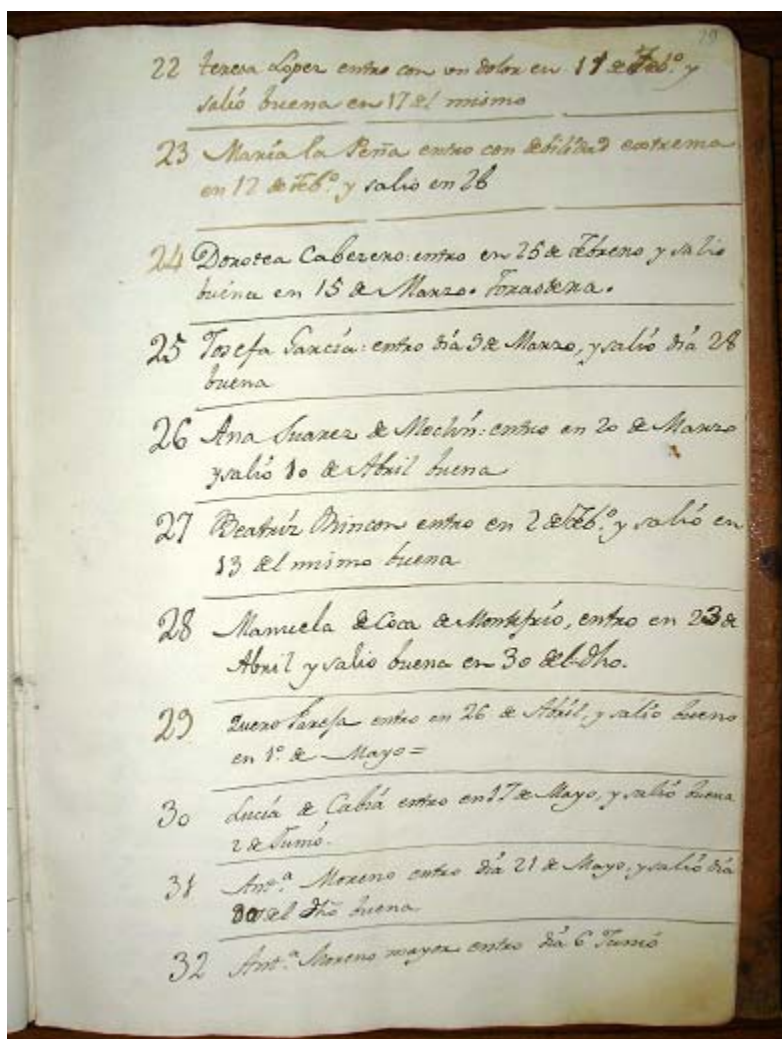 22 teresa Lopez entro con un dolor en 11 de Feb.º y
salió buena en 17 del mismo
23 María la Peña entro con debilidad extrema
en 12 de Feb.º y salio en 26
24 Dorotea Caberero: entro en 25 de Febrero y salio
buena en 15 de Marzo. forastera.
25 Josefa García: entro día 9 de Marzo, y salió día 28
buena
26 Ana Suarez de Moclin: entro en 20 de Marzo
y salió 10 de Abril buena
27 Beatríz Rincon entro en 2 de Feb.º y salió en
13 del mismo buena
28 Manuela de Coca de Montefrío, entro en 23 de
Abril y salio buena en 30 del dho.
29 entro en 26 de Abríl, y salío buena
en 1º de Mayo=
30 Lucía de Cabra entro en 17 de Mayo, y salió buena
2 de Junio.
31 Ant.ª Moreno entro día 21 de Mayo, y salió día
30 del dho buena
32 Ant.ª Moreno mayor entro día 6 Junió